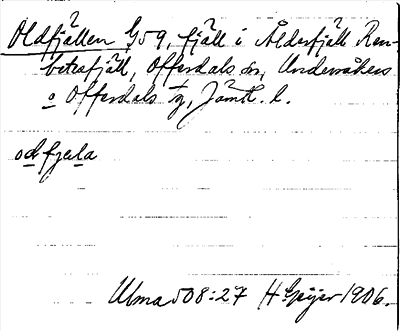 Oldfjällen G59, fjäll i Ålderfjäll Ren-
betesfjäll, Offerdals sn, Undersåkers
o Offerdals tg, Jämtl. l.
odfjela
Ulma 508:27 H Geijer 1906.